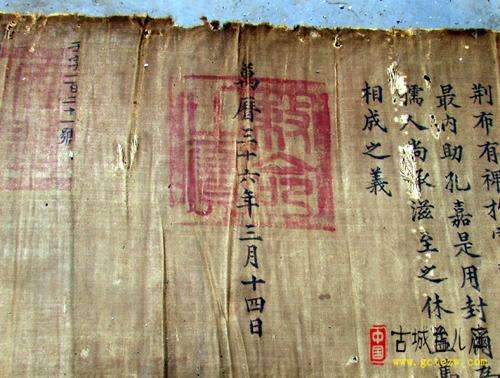 荆布有裨
最内助孔嘉是用封
孺人尚承滋至之休
相成之義
萬曆三十六年三月十四日
敕命之寶
中国
古城
www.gctezw.com